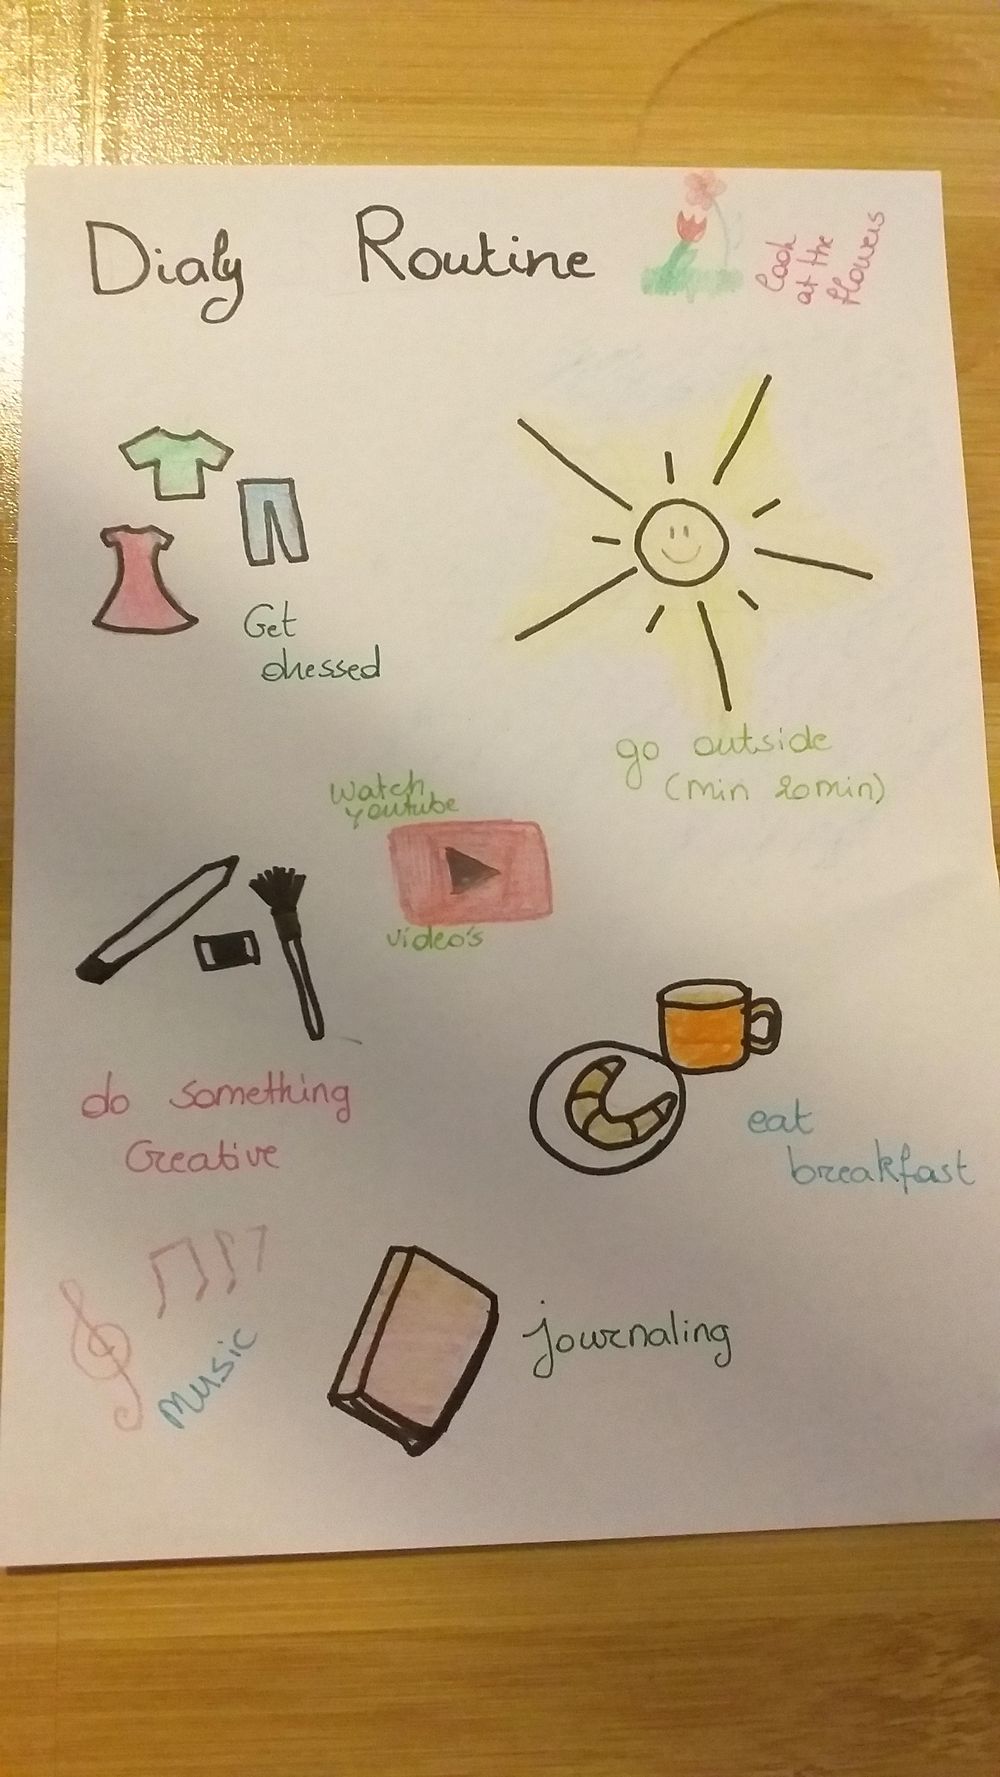 Dialy Routine
look
at the
flowers
Get
dressed
go outside
(min 20min)
Watch
Youtube
video's
do something
Creative
eat
breakfast
Music
journaling